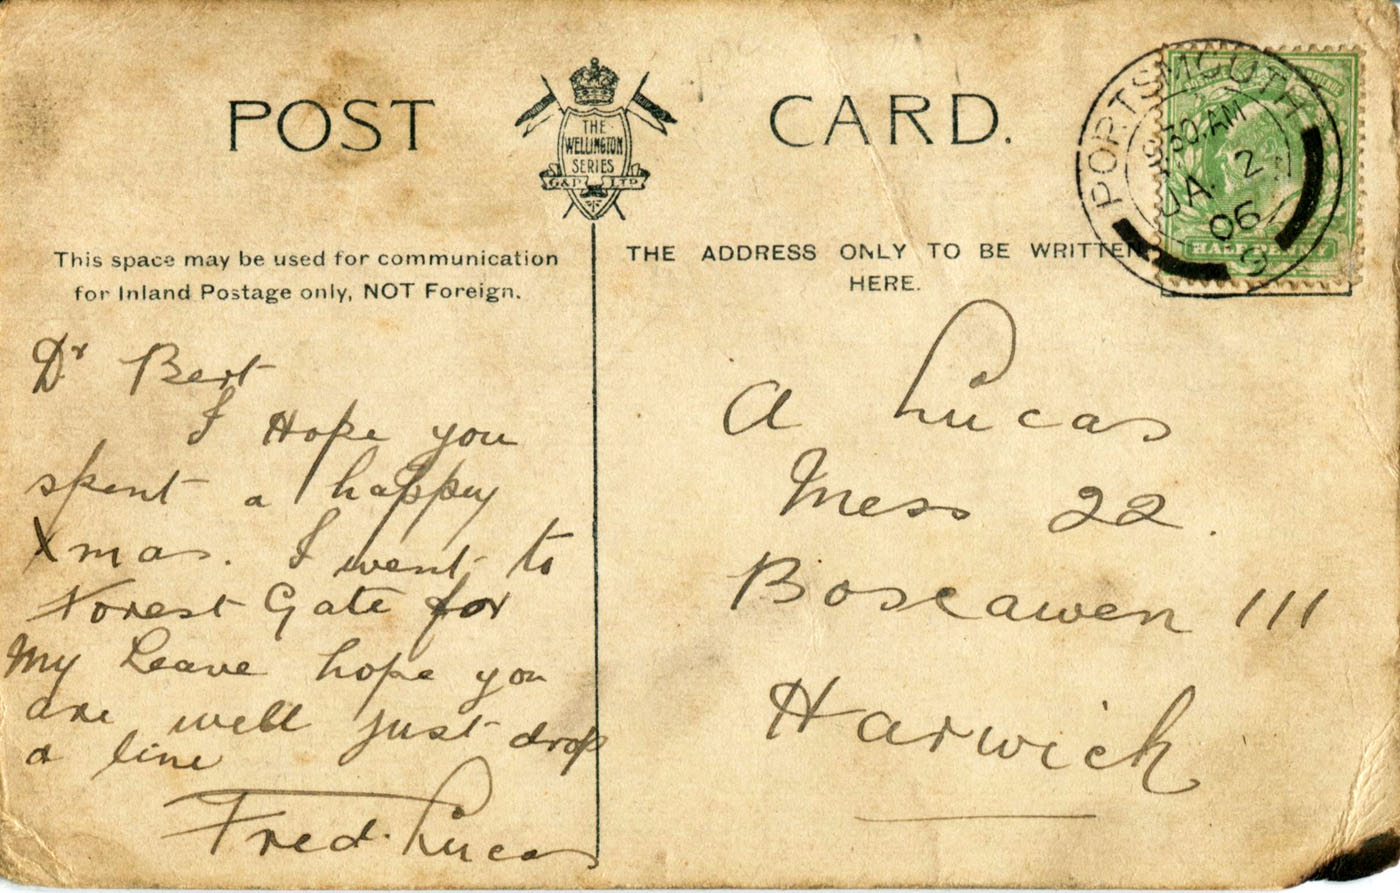 POST CARD.
THE
WELLINGTON
SERIES
G&P LTD
This space may be used for communication
for Inland Postage only, NOT Foreign.
THE ADDRESS ONLY TO BE WRITTEN
HERE.
PORTSMOUTH
30.AM
JA. 2
06
HALF PENNY
Dr Bert
I Hope you
spent a happy
Xmas. I went to
Forest Gate for
My Leave hope you
are well just drop
a line
Fred. Lucas
A Lucas
Mess 22.
Boscawen III
Harwich